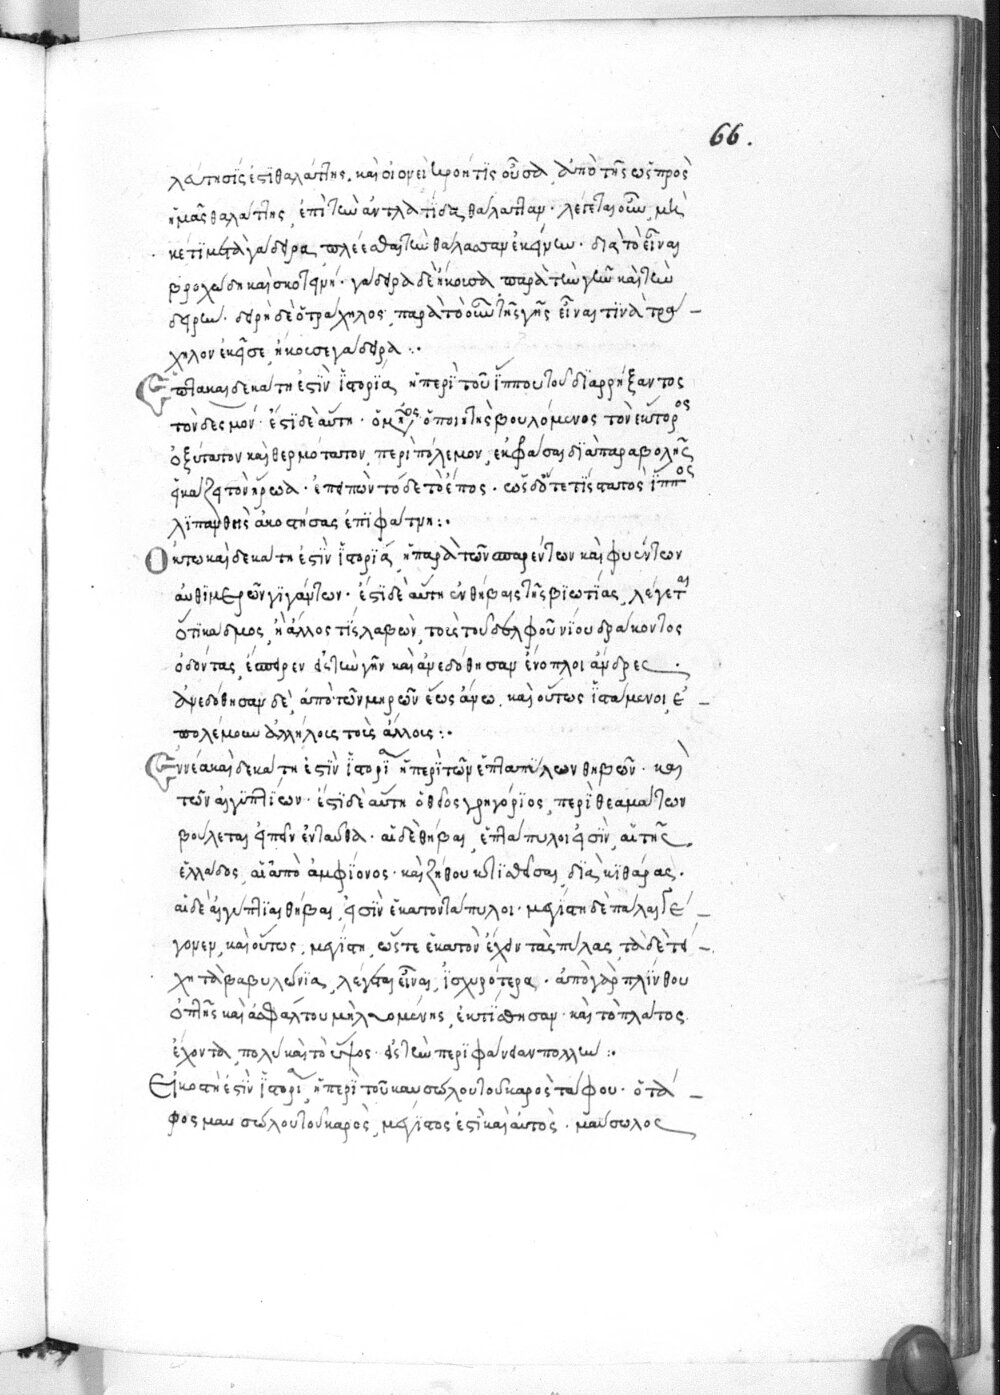 66.
λάτησίς ἐστι θαλάττης. καὶ οἱονεὶ πρόητις οὖσα ἀπὸ τῆς ὡς πρὸς
ἡμᾶς θαλάττης, ἐπὶ τὴν ἀντλάτιδα θάλατταν. λέγεται οὖν μὴ
κέτι μετὰ γάδειρα πλέεσθαι τὴν θάλασσαν ἐκείνην. διὰ τὸ εἶναι
βροχώδη καὶ σκοτεινή. γάδειρα δὲ ἤκουσα παρὰ τὴν γῆν καὶ τὴν
δειρὴν. δειρὴ δὲ ὁ τράχηλος, παρὰ τὸ οὖν τῆς γῆς εἶναι τινὰ τρά
χηλον ἐκεῖσε, ἤκουσε γάδειρα :.
Ἑπτακαιδεκάτη ἐστὶν ἱστορία, ἡ περὶ τοῦ ἵππου τοῦ διαρρήξαντος
τὸν δεσμόν. ἔστι δὲ αὕτη. ὅμηρος ὁ ποιητὴς βουλόμενος τὸν ἕκτορος
ὀξύτατον καὶ θερμότατον, περὶ πόλεμον, ἐκφράσαι διὰ παραβολῆς
εἰκάζει τὸν ἥρωα. ἐπειπὼν τόδε τὸ ἔπος. ὡς δ' ὅτε τὶς στατὸς ἵππος
λιπανθεὶς ἀκοστήσας ἐπὶ φάτνη :.
Ὀκτωκαιδεκάτη ἐστὶν ἱστορία, ἡ παρὰ τῶν σπαρέντων καὶ φυέντων
αὐθημερῶν γιγάντων. ἔστι δὲ αὕτη ἐν θήβαις τῆς βιωτίας, λέγεται
ὅτι κάδμος, ἢ ἄλλος τὶς λαβὼν, τοὺς τοῦ δελφουνίου δράκοντος
ὀδόντας, ἔσπειρεν εἰς τὴν γῆν καὶ ἀνεδόθησαν ἔνοπλοι ἄνδρες.
ἀνεδόθησαν δὲ, ἀπὸ τῶν μηρῶν ἕως ἄνω. καὶ οὕτως ἱστάμενοι, ἐ
πολέμουν ἀλλήλοις τοῖς ἄλλοις :.
Ἐννεακαιδεκάτη ἐστὶν ἱστορία ἡ περὶ τῶν ἑπταπύλων θηβῶν. καὶ
τῶν αἰγυπτίων. ἔστι δὲ αὕτη ὁ θεῖος γρηγόριος, περὶ θεαμάτων
βούλεται εἰπεῖν ἐνταῦθα. αἱ δὲ θῆβαι, ἑπτάπυλοι εἰσὶν, αἱ τῆς
ἑλλάδος, αἱ ἀπὸ ἀμφίονος. καὶ ζήθου κτισθεῖσαι, διὰ κιθάρας.
αἱ δὲ αἰγύπτιαι θῆβαι, εἰσὶν ἑκατοντάπυλοι. μέγισται δὲ πάλαι γε
γόνεν, καὶ οὕτως, μέγισται, ὥστε ἑκατὸν ἔχειν τὰς πύλας, τὰ δὲ τεί
χη τὰ βαβυλώνια, λέγεται εἶναι, ἰσχυρότερα. ἀπὸ γὰρ πλίνθου
ὀπτῆς καὶ ἀσφάλτου μηλωμένης, ἐκτίσθησαν. καὶ τὸ πλάτος
ἔχοντα, πολὺ καὶ τὸ ὕψος. εἰς τὴν περιφάνειαν πολλὴν :.
Εἰκοστὴ ἐστὶν ἱστορία, ἡ περὶ τοῦ μαυσώλου τοῦ καρὸς τάφου. ὁ τά
φος μαυσώλου τοῦ καρὸς, μέγιστος ἐστὶ καὶ αὐτὸς. μαύσωλος